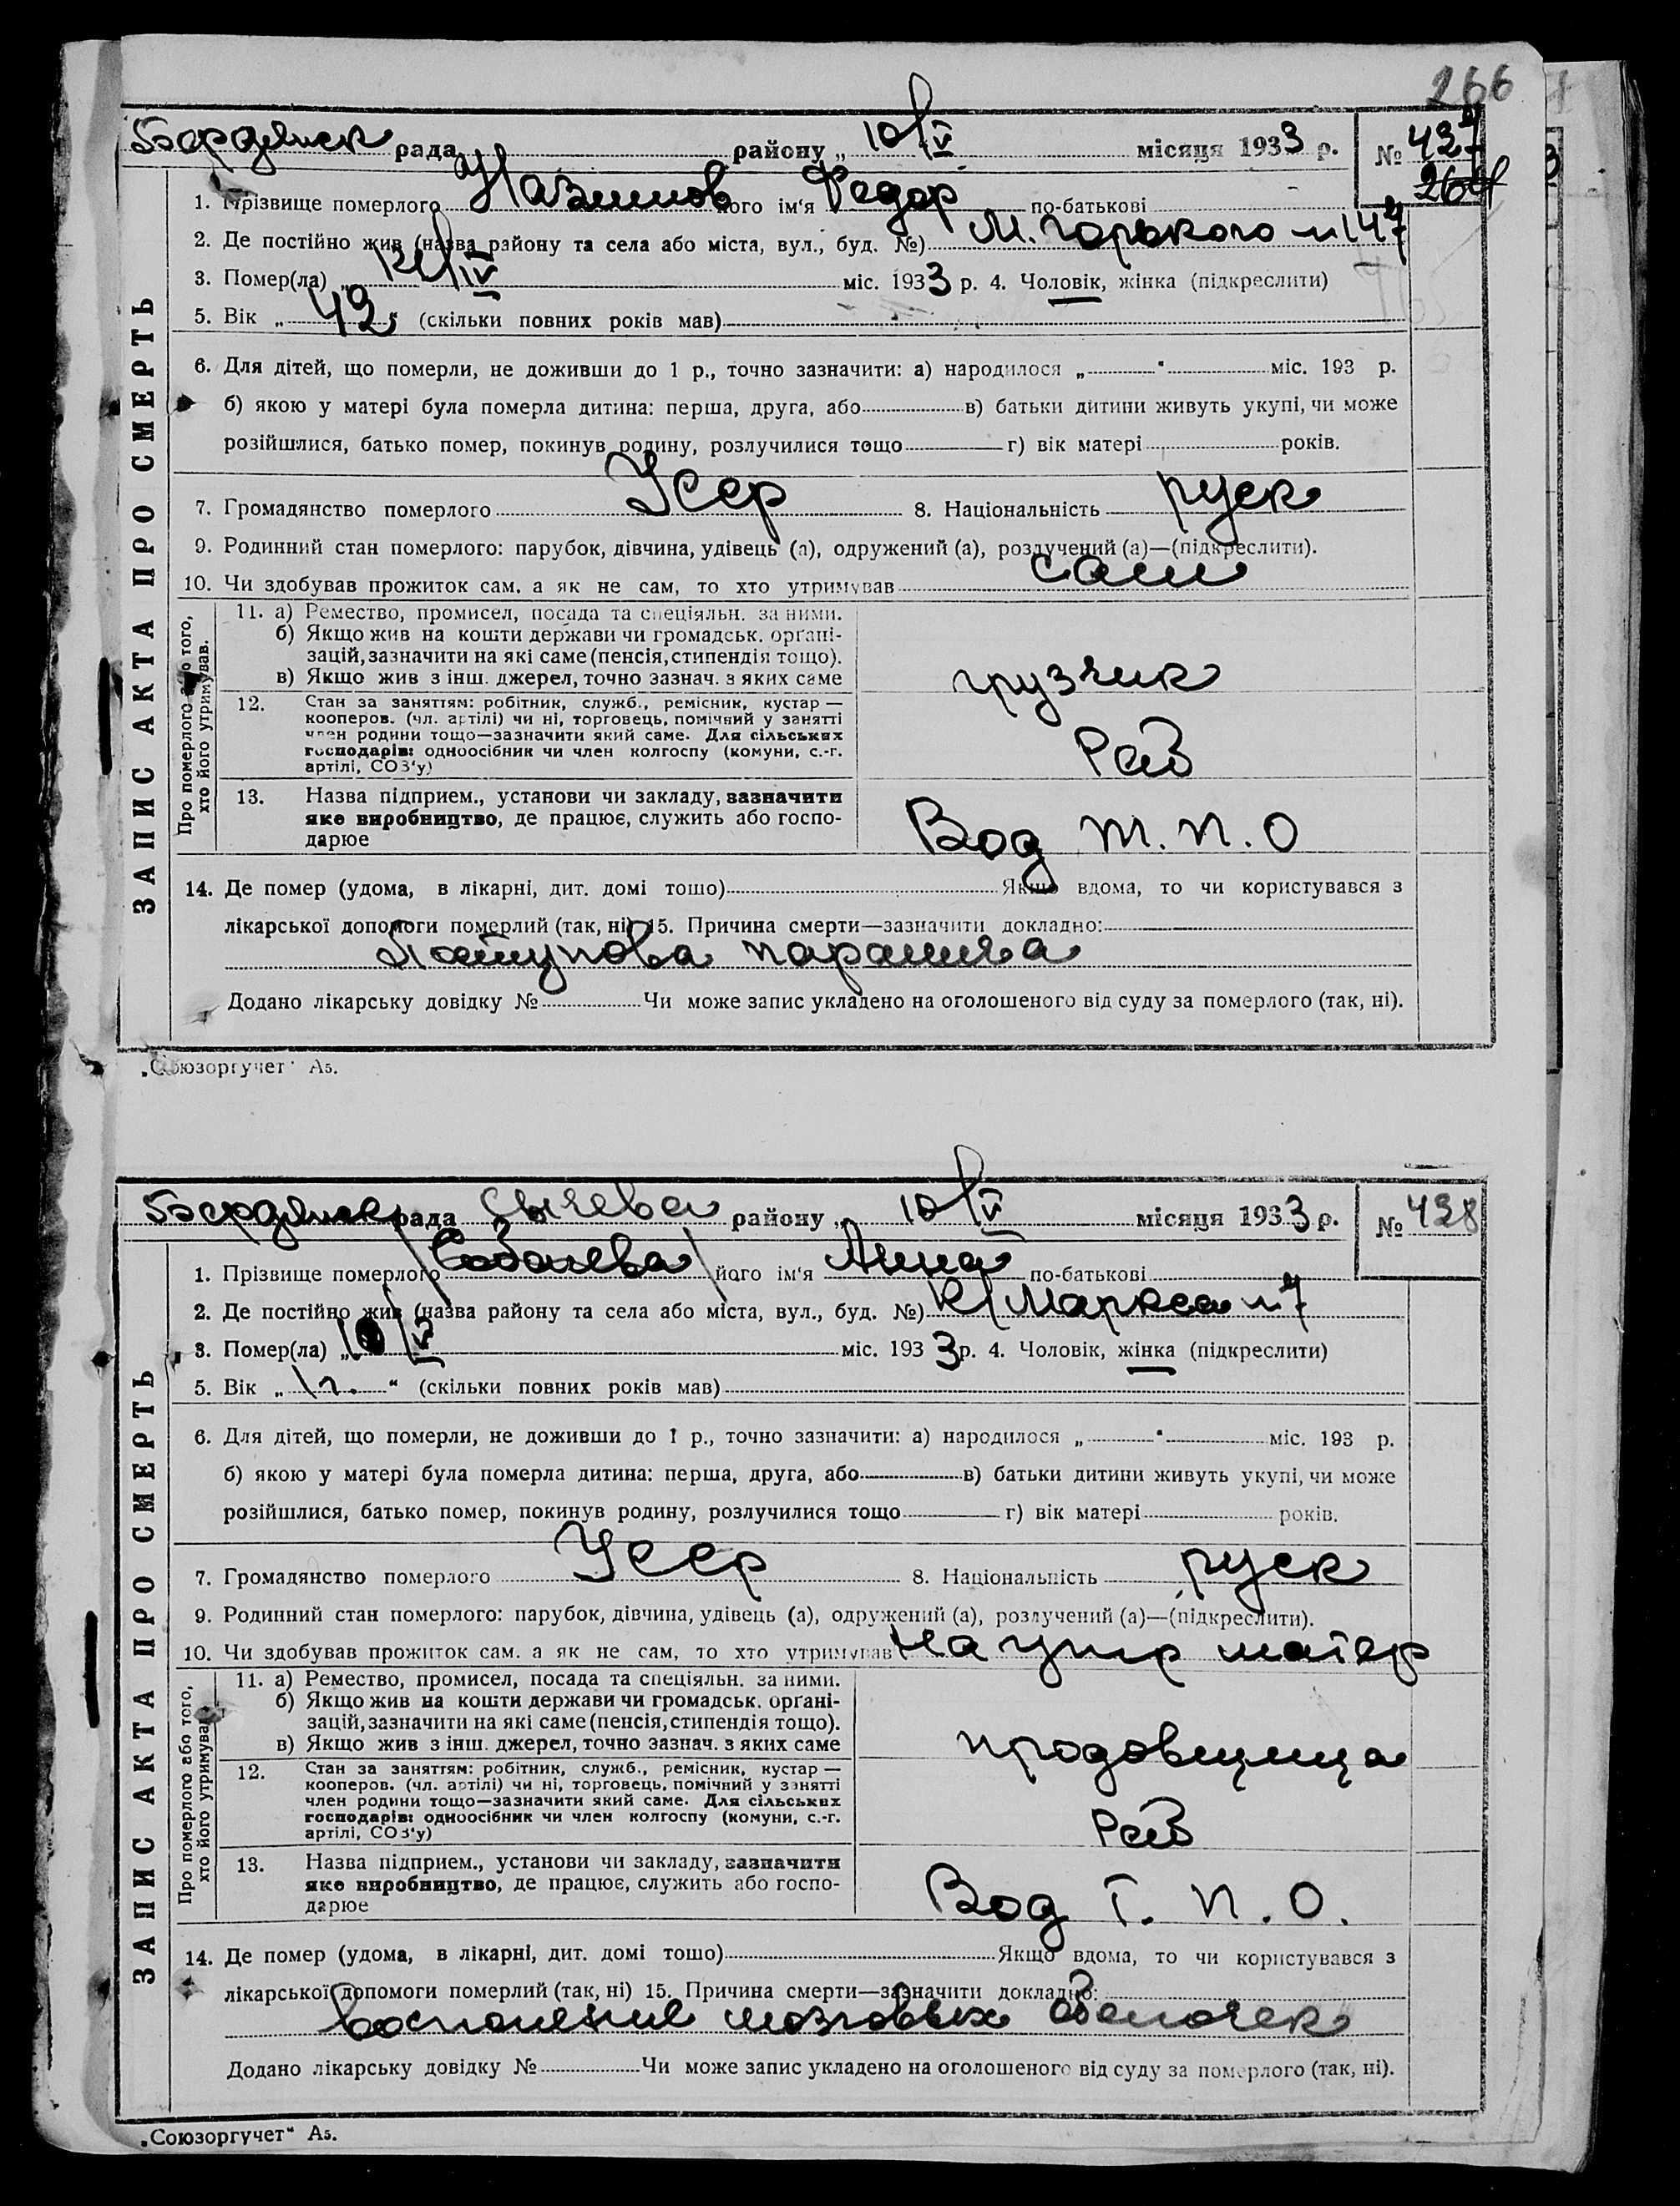 266
Бердянск рада районy „ 10/V місяця 1933 р. № 437
264
1. Прізвище померлого Назимов його ім'я Федор по-батькові
2. Де постійно жив (назва району та села або міста, вул., буд. №) М. Горького № 147
3. Помер(ла) „ IV міс. 1933 р. 4. Чоловік, жінка (підкреслити)
5. Вік „ 42 “ (скільки повних років мав)
6. Для дітей, що померли, не доживши до 1 р., точно зазначити: а) народилося „ “ міс. 193 р.
б) якою у матері була померла дитина: перша, друга, або в) батьки дитини живуть укупі, чи може
розійшлися, батько помер, покинув родину, розлучилися тощо г) вік матері років.
7. Громадянство померлого Усср 8. Національність руск
9. Родинний стан померлого: парубок, дівчина, удівець (а), одружений (а), розлучений (а)—(підкреслити).
10. Чи здобував прожиток сам, а як не сам, то хто утримував сам
ЗАПИС АКТА ПРО СМЕРТЬ
Про померлого або того, хто його утримував.
11. а) Ремество, промисел, посада та спеціяльн. за ними.
б) Якщо жив на кошти держави чи громадськ. орґані-
зацій, зазначити на які саме (пенсія, стипендія тощо).
в) Якщо жив з інш. джерел, точно зазнач. з яких саме
грузчик
12. Стан за заняттям: робітник, служб., ремісник, кустар —
кооперов. (чл. артілі) чи ні, торговець, помічний у занятті
член родини тощо—зазначити який саме. Для сільських
господарів: одноосібник чи член колгоспу (комуни, с.-г.
артілі, СОЗ'у)
Раб
13. Назва підприєм., установи чи закладу, зазначити
яке виробництво, де працює, служить або госпо-
дарює
Вод т. п. о
14. Де помер (удома, в лікарні, дит. домі тощо) Якщо вдома, то чи користувався з
лікарської допомоги померлий (так, ні) 15. Причина смерти—зазначити докладно:
Додано лікарську довідку № Чи може запис укладено на оголошеного від суду за померлого (так, ні).
„Союзоргучет“ А5.
Бердянск рада Сычева району „ 10/V місяця 1933 р. № 438
1. Прізвище померлого його ім'я Анна по-батькові
2. Де постійно жив (назва району та села або міста, вул., буд. №) К/Маркса № 7
3. Помер(ла) „ V міс. 1933 р. 4. Чоловік, жінка (підкреслити)
5. Вік „ 1 г. “ (скільки повних років мав)
6. Для дітей, що померли, не доживши до 1 р., точно зазначити: а) народилося „ “ міс. 193 р.
б) якою у матері була померла дитина: перша, друга, або в) батьки дитини живуть укупі, чи може
розійшлися, батько помер, покинув родину, розлучилися тощо г) вік матері років.
7. Громадянство померлого Усср 8. Національність руск
9. Родинний стан померлого: парубок, дівчина, удівець (а), одружений (а), розлучений (а)—(підкреслити).
10. Чи здобував прожиток сам, а як не сам, то хто утримував На ижд матер
ЗАПИС АКТА ПРО СМЕРТЬ
Про померлого або того, хто його утримував.
11. а) Ремество, промисел, посада та спеціяльн. за ними.
б) Якщо жив на кошти держави чи громадськ. орґані-
зацій, зазначити на які саме (пенсія, стипендія тощо).
в) Якщо жив з інш. джерел, точно зазнач. з яких саме
продовщица
12. Стан за заняттям: робітник, служб., ремісник, кустар —
кооперов. (чл. артілі) чи ні, торговець, помічний у занятті
член родини тощо—зазначити який саме. Для сільських
господарів: одноосібник чи член колгоспу (комуни, с.-г.
артілі, СОЗ'у)
Раб
13. Назва підприєм., установи чи закладу, зазначити
яке виробництво, де працює, служить або госпо-
дарює
Вод Т. п. о.
14. Де помер (удома, в лікарні, дит. домі тощо) Якщо вдома, то чи користувався з
лікарської допомоги померлий (так, ні) 15. Причина смерти—зазначити докладно:
восполение мозговых оболочек
Додано лікарську довідку № Чи може запис укладено на оголошеного від суду за померлого (так, ні).
„Союзоргучет“ А5.